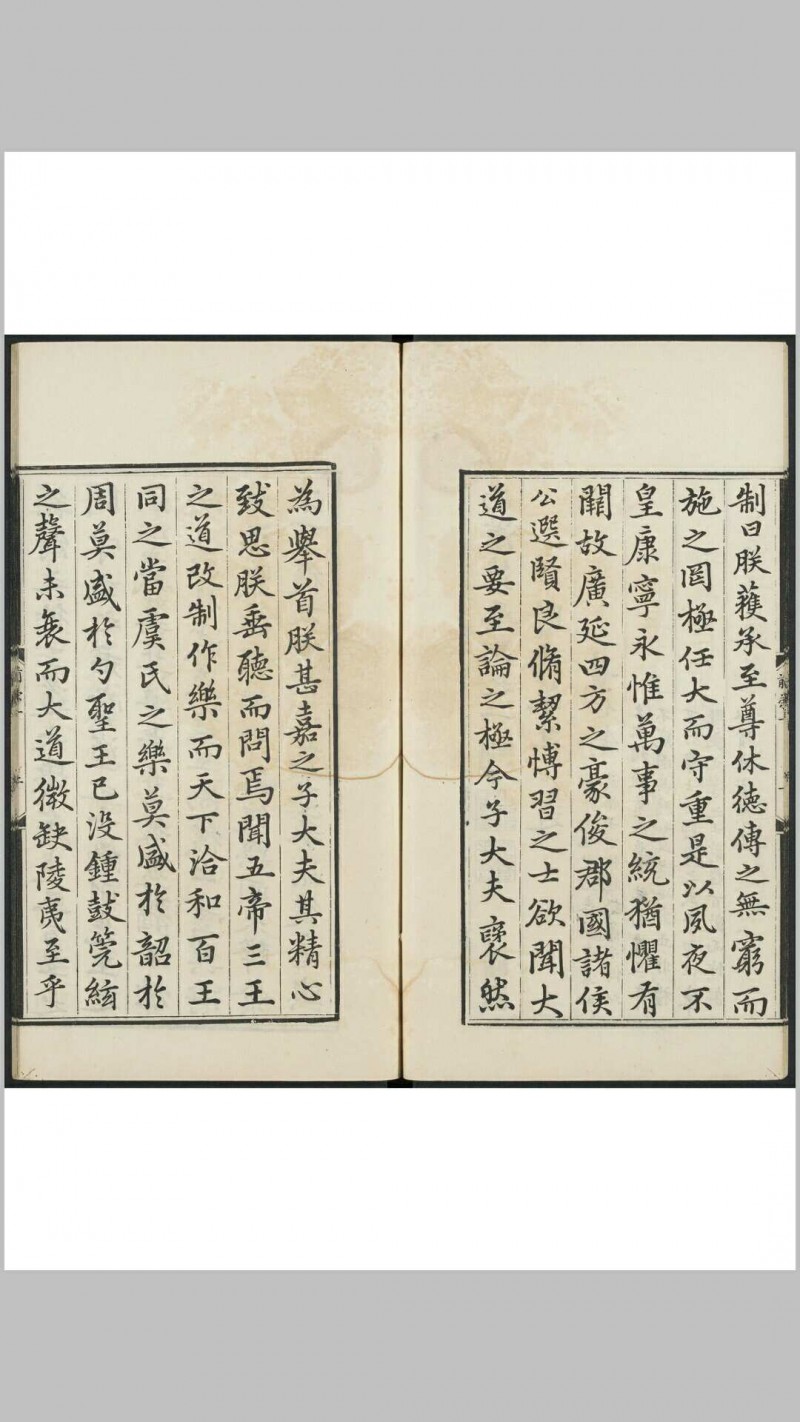 制曰朕蒦承至尊休德傳之無窮而
施之罔極任大而守重是以夙夜不
皇康寧永惟萬事之統猶懼有
闕故廣延四方之豪俊郡國諸侯
公選賢良脩絜博習之士欲聞大
道之要至論之極今子大夫褎然
為舉首朕甚嘉之子大夫其精心
致思朕垂聽而問焉聞五帝三王
之道改制作樂而天下洽和百王
同之當虞氏之樂莫盛於韶於
周莫盛於勺聖王已没鍾鼓筦絃
之聲未衰而大道微缺陵夷至乎